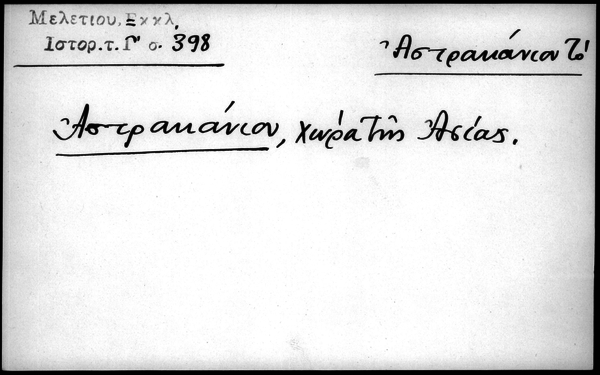 Μελετίου, Εκκλ.
Ἱστορ. τ. Γ' σ. 398
Ἀστρακάνιον τό
Ἀστρακάνιον, χώρα τῆς Ἀσίας.